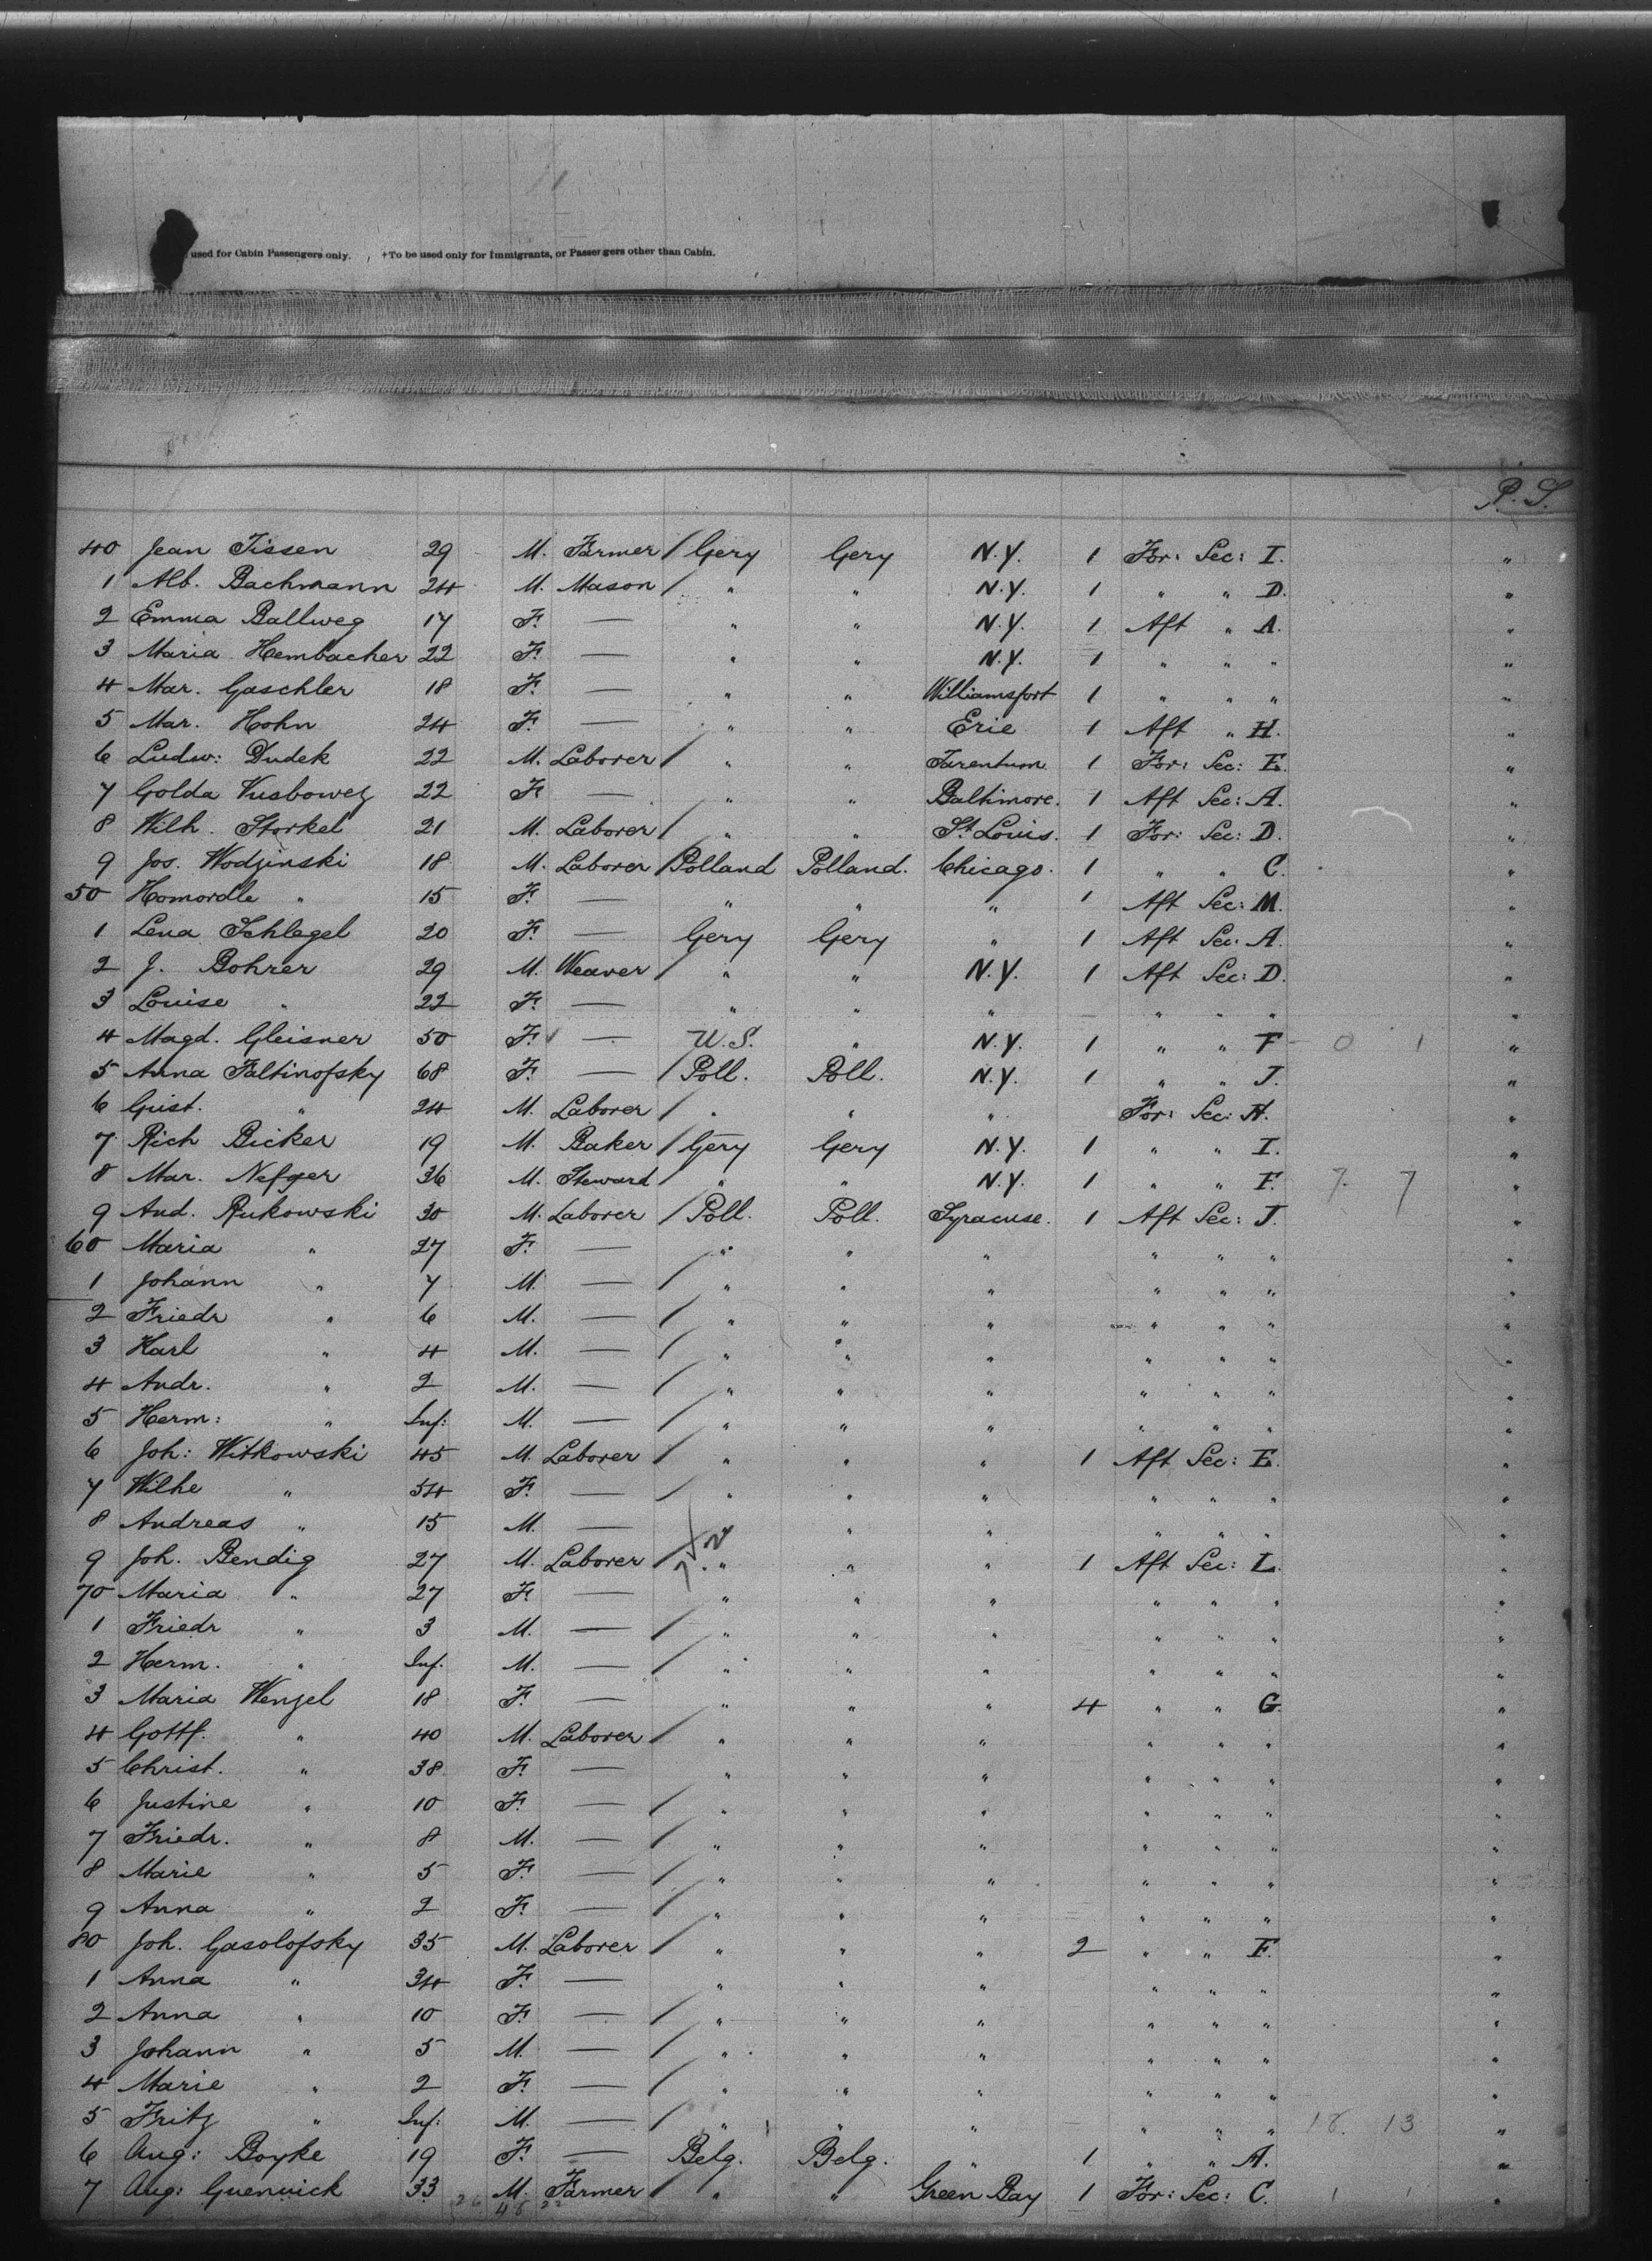 used for Cabin Passengers only. †To be used only for Immigrants, or Passengers other than Cabin.
P. S.
40 Jean Tissen 29 M. Farmer / Gery Gery N.Y. 1 For: Sec: I. "
1 Alb. Bachmann 24 M. Mason / " " N.Y. 1 " " D. "
2 Emma Ballweg 17 F. — " " N.Y. 1 Aft " A. "
3 Maria Hembacher 22 F. — " " N.Y. 1 " " " "
4 Mar. Gaschler 18 F. — " " Williamsfort 1 " " " "
5 Mar. Hohn 24 F. — " " Erie 1 Aft " H. "
6 Ludw: Dudek 22 M. Laborer / " " Tarentum 1 For: Sec: E. "
7 Golda 22 F. — " " Baltimore. 1 Aft Sec: A. "
8 Wilh. Storkel 21 M. Laborer / " " St. Louis. 1 For: Sec: D. "
9 Jos. Wodzinski 18 M. Laborer / Polland Polland. Chicago. 1 " " C. "
50 Homordle " 15 F. — " " " 1 Aft Sec: M. "
1 Lena Schlegel 20 F. — Gery Gery " 1 Aft Sec: A. "
2 J. Bohrer 29 M. Weaver / " " N.Y. 1 Aft Sec: D. "
3 Louise " 22 F. — " " " " " " "
4 Magd. Gleisner 50 F. — U.S. " N.Y. 1 " " F - 0 1 "
5 Anna Faltinofsky 68 F. — / Poll. Poll. N.Y. 1 " " J. "
6 Gust. " 24 M. Laborer / " " " For: Sec: H. "
7 Rich Bicker 19 M. Baker / Gery Gery N.Y. 1 " " I. "
8 Mar. Nefger 36 M. Steward / " " N.Y. 1 " " F. 7. 7 "
9 And. Rukowski 30 M. Laborer / Poll. Poll. Syracuse. 1 Aft Sec: J. "
60 Maria " 27 F. — " " " " " " "
1 Johann " 7 M. — / " " " " " " "
2 Friedr " 6 M. — / " " " " " " "
3 Karl " 4 M. — / " " " " " " "
4 Andr. " 2 M. — / " " " " " " "
5 Herm: " Inf: M. — / " " " " " " "
6 Joh: Witkowski 45 M. Laborer / " " " 1 Aft Sec: E. "
7 Wilhe " 54 F. — / " " " " " " "
8 Andreas " 15 M. — " " " " " "
9 Joh. Bendig 27 M. Laborer / " " " 1 Aft Sec: L. "
70 Maria " 27 F. — " " " " " " "
1 Friedr " 3 M. — / " " " " " " "
2 Herm. " Inf. M. — / " " " " " " "
3 Maria Wenzel 18 F. — " " " 4 " " G. "
4 Gottf. " 40 M. Laborer / " " " " " " "
5 Christ. " 38 F. — " " " " " " "
6 Justine " 10 F. — / " " " " " " "
7 Friedr. " 8 M. — / " " " " " " "
8 Marie " 5 F. — / " " " " " " "
9 Anna " 2 F. — / " " " " " " "
80 Joh. Gasolofsky 35 M. Laborer / " " " 2 " " F. "
1 Anna " 34 F. — " " " " " " "
2 Anna " 10 F. — / " " " " " " "
3 Johann " 5 M. — / " " " " " " "
4 Marie " 2 F. — / " " " " " " "
5 Fritz " Inf: M. — / " " " " " " 18. 13 "
6 Aug: Boyke 19 F. — Belg. Belg. " 1 " " A. "
7 Aug: Guenuick 33 M. Farmer / " " Green Bay 1 For: Sec: C. 1 1 "